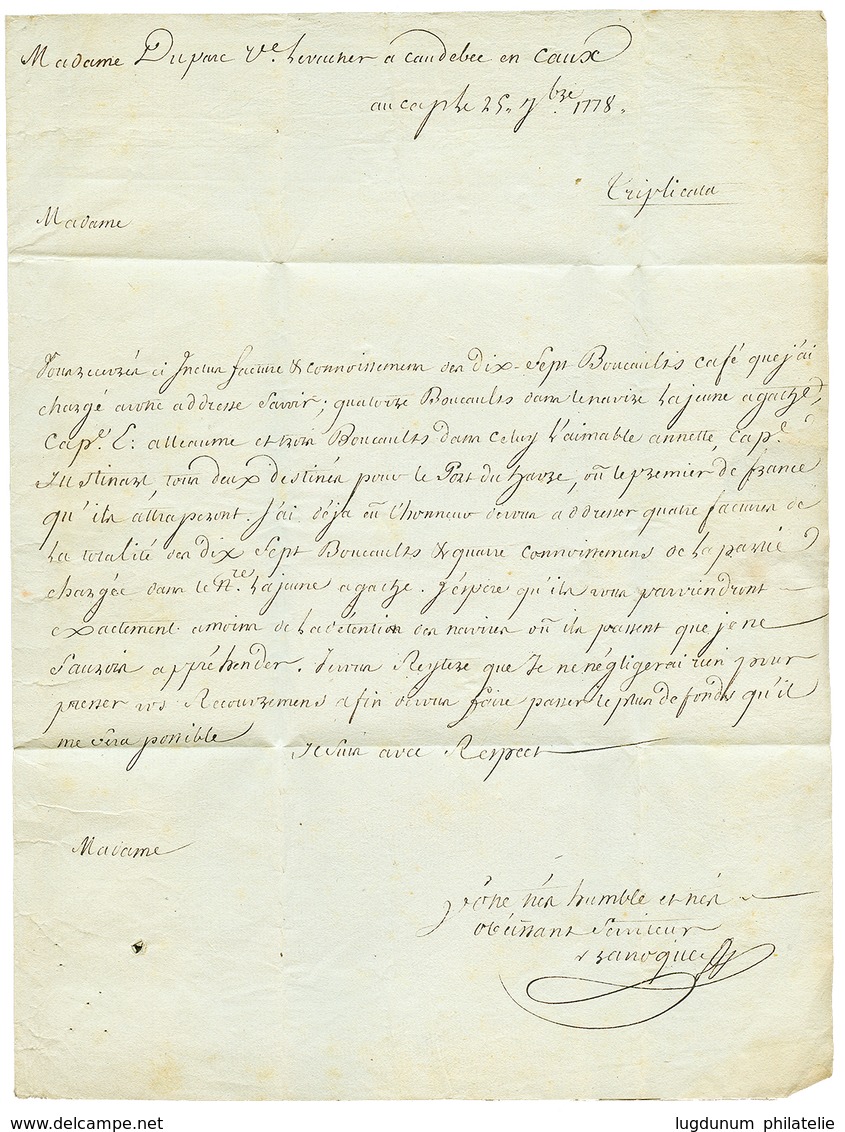 Madame Duparc Vve. Levacher a Caudebec en Caux
au cap le 25. 7bre. 1778.
Triplicata
Madame
Vous recevrés ci Inclus facture & connoissement des Dix-Sept Boucaults café que j'ai
chargé a votre addresse Savoir; quatorze Boucaults dans le navire La jeune agathe,
Capne. E: alleaume et trois Boucaults dans celuy L'aimable annette, Cape.
tous deux destinés pour le Port du havre, où le premier de france
qu'ils attraperont. J'ai déja eû l'honneur de vous addresser quatre factures de
La totalité des Dix Sept Boucaults & quatre connoissemens de La partie
chargée dans le Nre. La jeune agathe. J'espere qu'ils vous parviendront
exactement a moins de La détention des navires où ils passent que je ne
Saurois appréhender. Je vous Reytere que Je ne négligerai rien pour
presser vos Recouvremens afin de vous faire passer le plus de fonds qu'il
me sera possible
Je Suis avec Respect
Madame
Votre trés humble et trés
obéissant Serviteur
www.delcampe.net
lugdunum philatelie